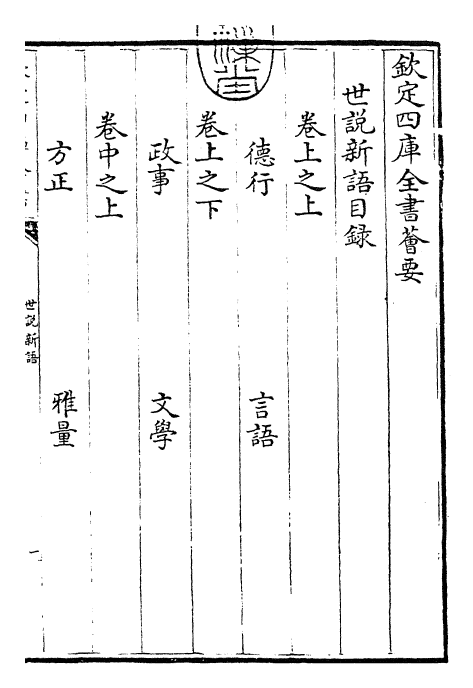 欽定四庫全書薈要
世說新語目録
卷上之上
德行 言語
卷上之下
政事 文學
卷中之上
方正 雅量
世說新語
一